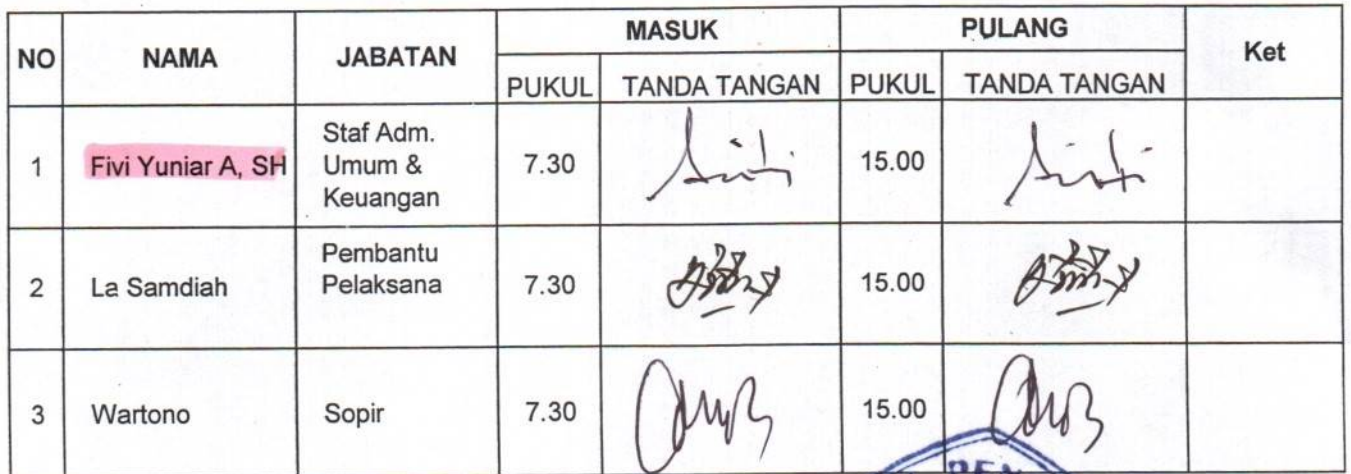 NO NAMA JABATAN MASUK PULANG Ket
PUKUL TANDA TANGAN PUKUL TANDA TANGAN
1 Fivi Yuniar A, SH Staf Adm. Umum & Keuangan 7.30 15.00
2 La Samdiah Pembantu Pelaksana 7.30 15.00
3 Wartono Sopir 7.30 15.00